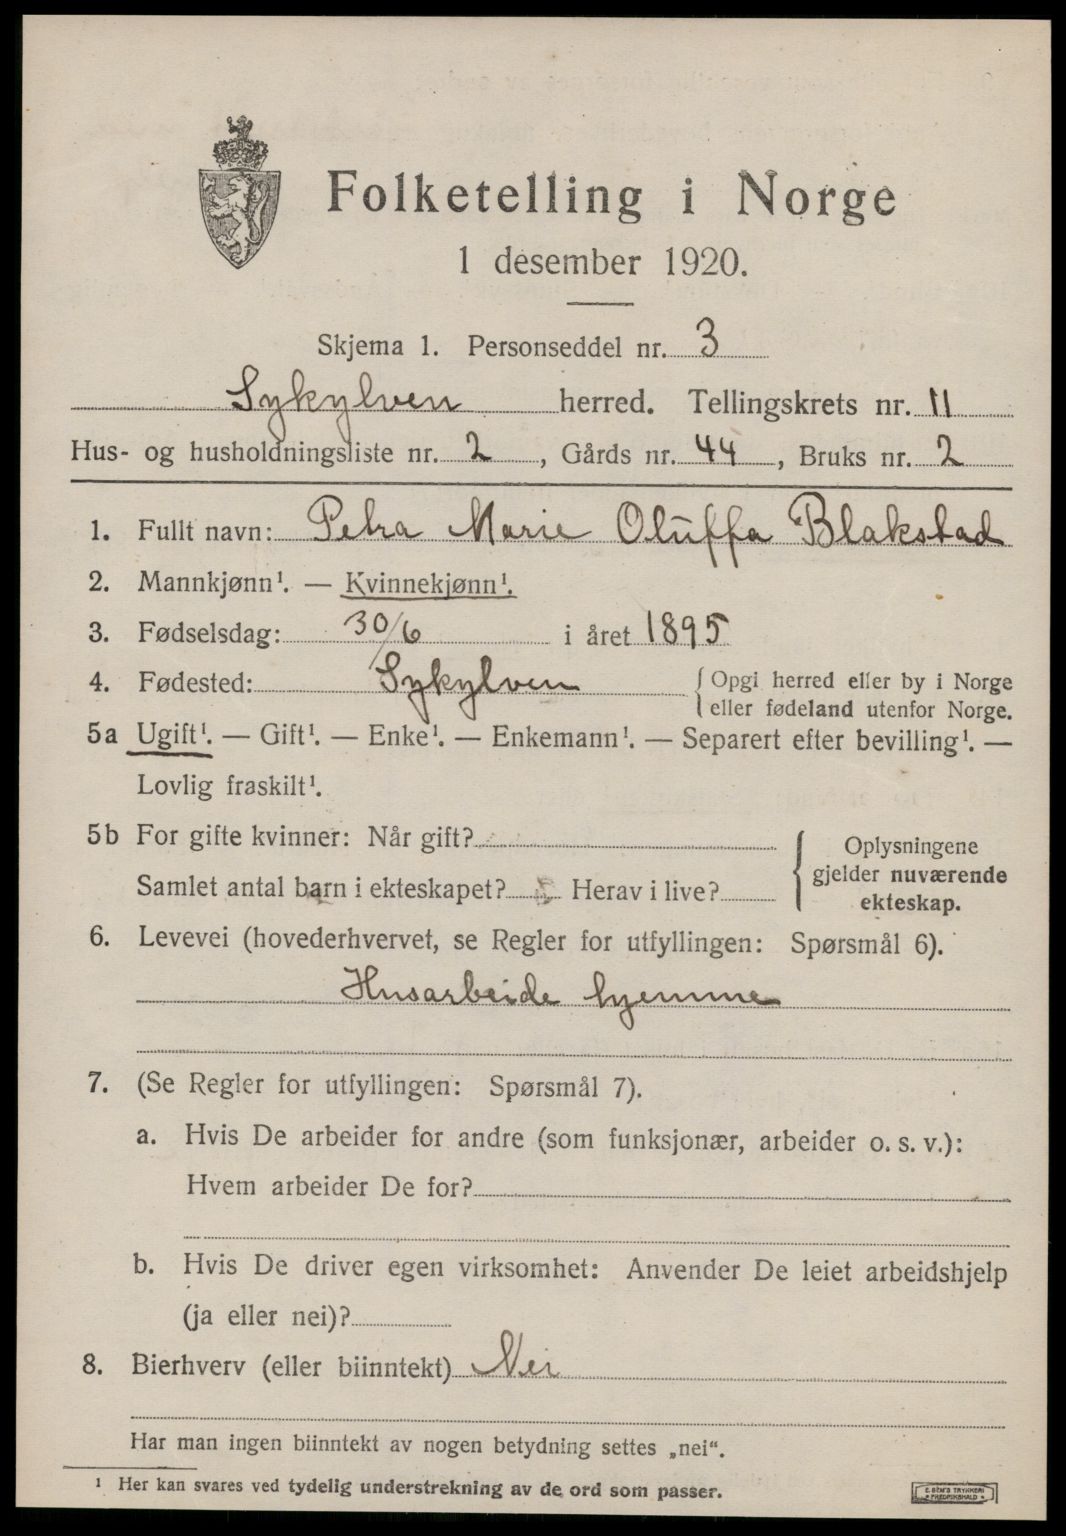 Folketelling i Norge
1 desember 1920.
Skjema 1. Personseddel nr. 3
Sykylven herred. Tellingskrets nr. 11
Hus- og husholdningsliste nr. 2, Gårds nr. 44, Bruks nr. 2
1. Fullt navn: Petra Marie Oluffa Blakstad
2. Mannkjønn¹. — Kvinnekjønn¹.
3. Fødselsdag: 30/6 i året 1895
4. Fødested: Sykylven { Opgi herred eller by i Norge
eller fødeland utenfor Norge.
5a Ugift¹. — Gift¹. — Enke¹. — Enkemann¹. — Separert efter bevilling¹. —
Lovlig fraskilt¹.
5b For gifte kvinner: Når gift?
Samlet antal barn i ekteskapet? Herav i live?
{ Oplysningene
gjelder nuværende
ekteskap.
6. Levevei (hovederhvervet, se Regler for utfyllingen: Spørsmål 6).
Husarbeide hjemme
7. (Se Regler for utfyllingen: Spørsmål 7).
a. Hvis De arbeider for andre (som funksjonær, arbeider o. s. v.):
Hvem arbeider De for?
b. Hvis De driver egen virksomhet: Anvender De leiet arbeidshjelp
(ja eller nei)?
8. Bierhverv (eller biinntekt) Nei
Har man ingen biinntekt av nogen betydning settes „nei“.
¹ Her kan svares ved tydelig understrekning av de ord som passer.
TRYKKERI
FREDRIKSHALD